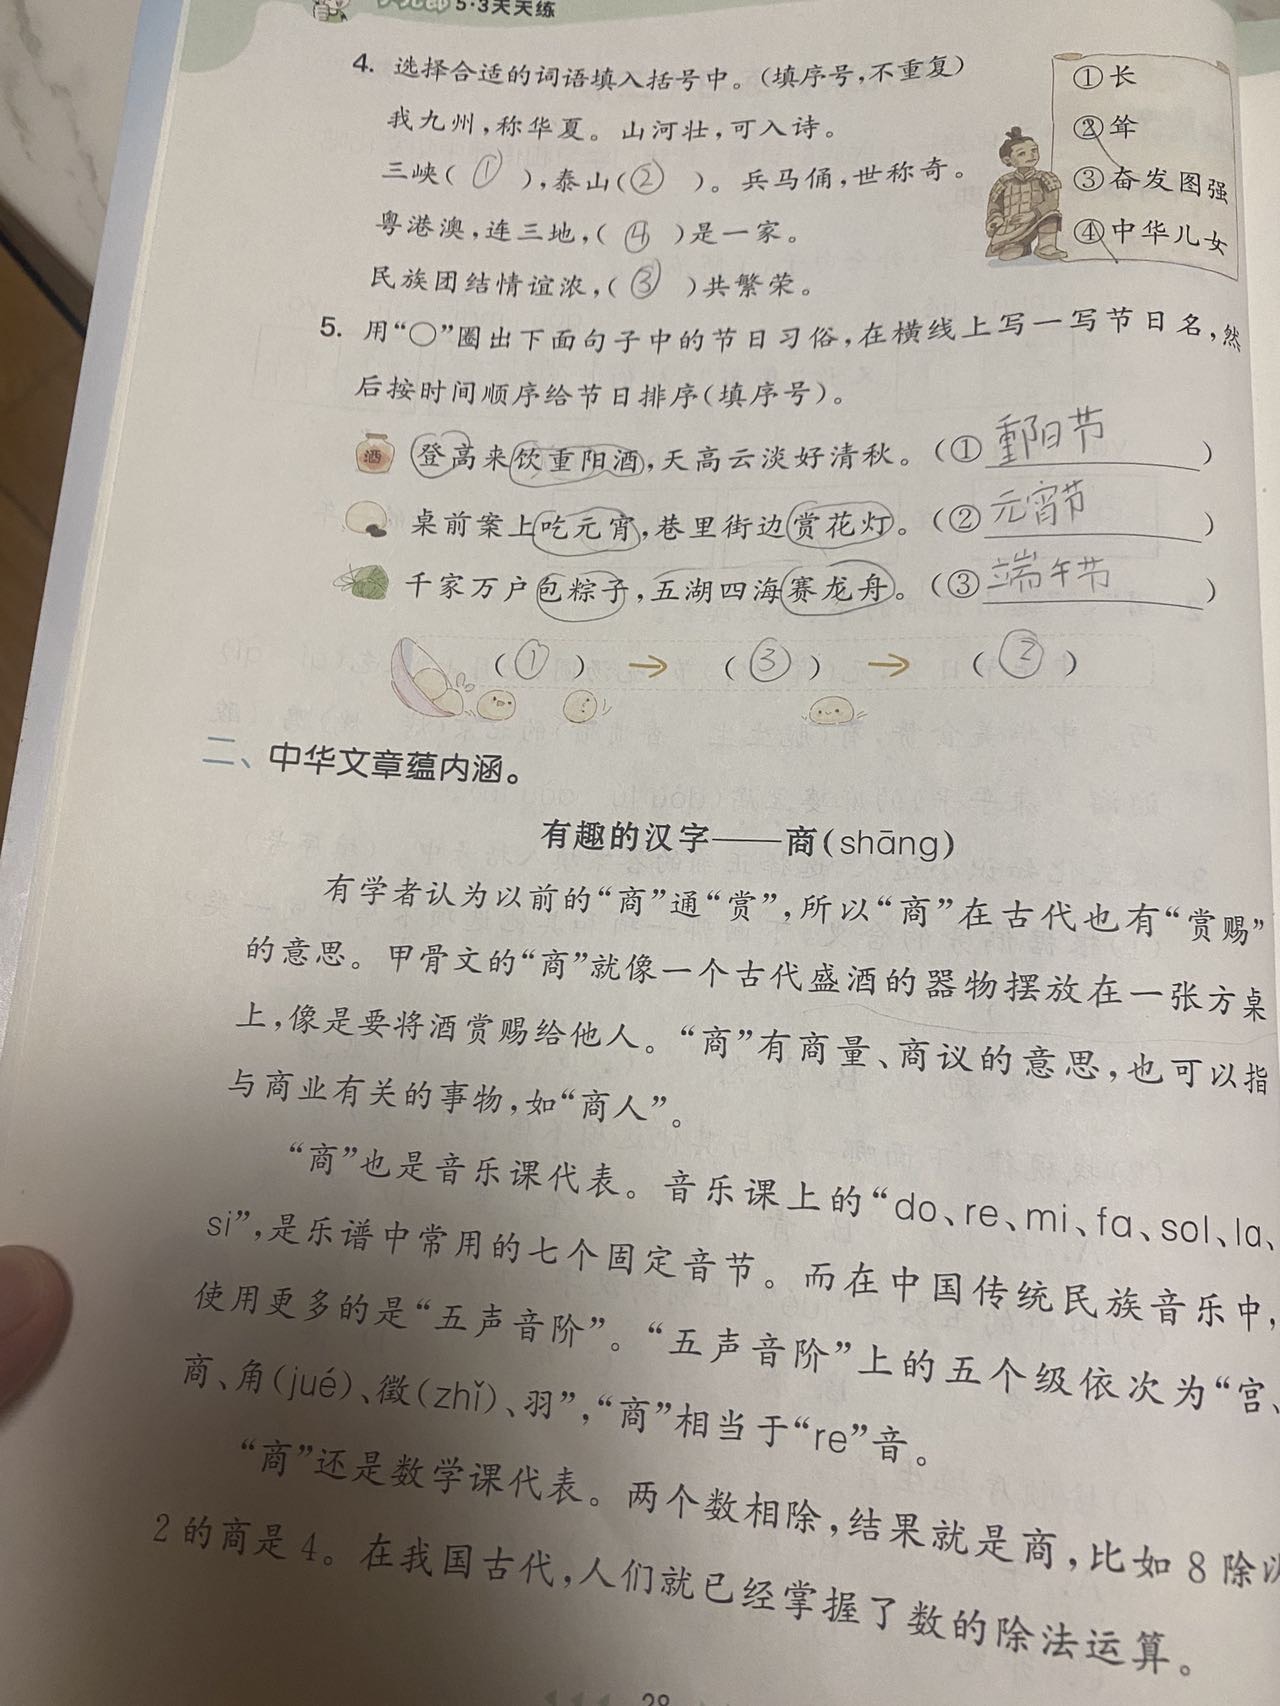 5·3天天练
4. 选择合适的词语填入括号中。(填序号,不重复)
我九州,称华夏。山河壮,可入诗。
三峡( ① ),泰山( ② )。兵马俑,世称奇。
粤港澳,连三地,( ④ )是一家。
民族团结情谊浓,( ③ )共繁荣。
①长
②耸
③奋发图强
④中华儿女
5. 用“○”圈出下面句子中的节日习俗,在横线上写一写节日名,然
后按时间顺序给节日排序(填序号)。
酒 登高来饮重阳酒,天高云淡好清秋。(① 重阳节 )
桌前案上吃元宵,巷里街边赏花灯。(② 元宵节 )
千家万户包粽子,五湖四海赛龙舟。(③ 端午节 )
( ① ) → ( ③ ) → ( ② )
二、中华文章蕴内涵。
有趣的汉字——商(shāng)
有学者认为以前的“商”通“赏”,所以“商”在古代也有“赏赐”
的意思。甲骨文的“商”就像一个古代盛酒的器物摆放在一张方桌
上,像是要将酒赏赐给他人。“商”有商量、商议的意思,也可以指
与商业有关的事物,如“商人”。
“商”也是音乐课代表。音乐课上的“do、re、mi、fa、sol、la、
si”,是乐谱中常用的七个固定音节。而在中国传统民族音乐中,
使用更多的是“五声音阶”。“五声音阶”上的五个级依次为“宫、
商、角(jué)、徵(zhǐ)、羽”,“商”相当于“re”音。
“商”还是数学课代表。两个数相除,结果就是商,比如 8 除以
2 的商是 4。在我国古代,人们就已经掌握了数的除法运算。
28